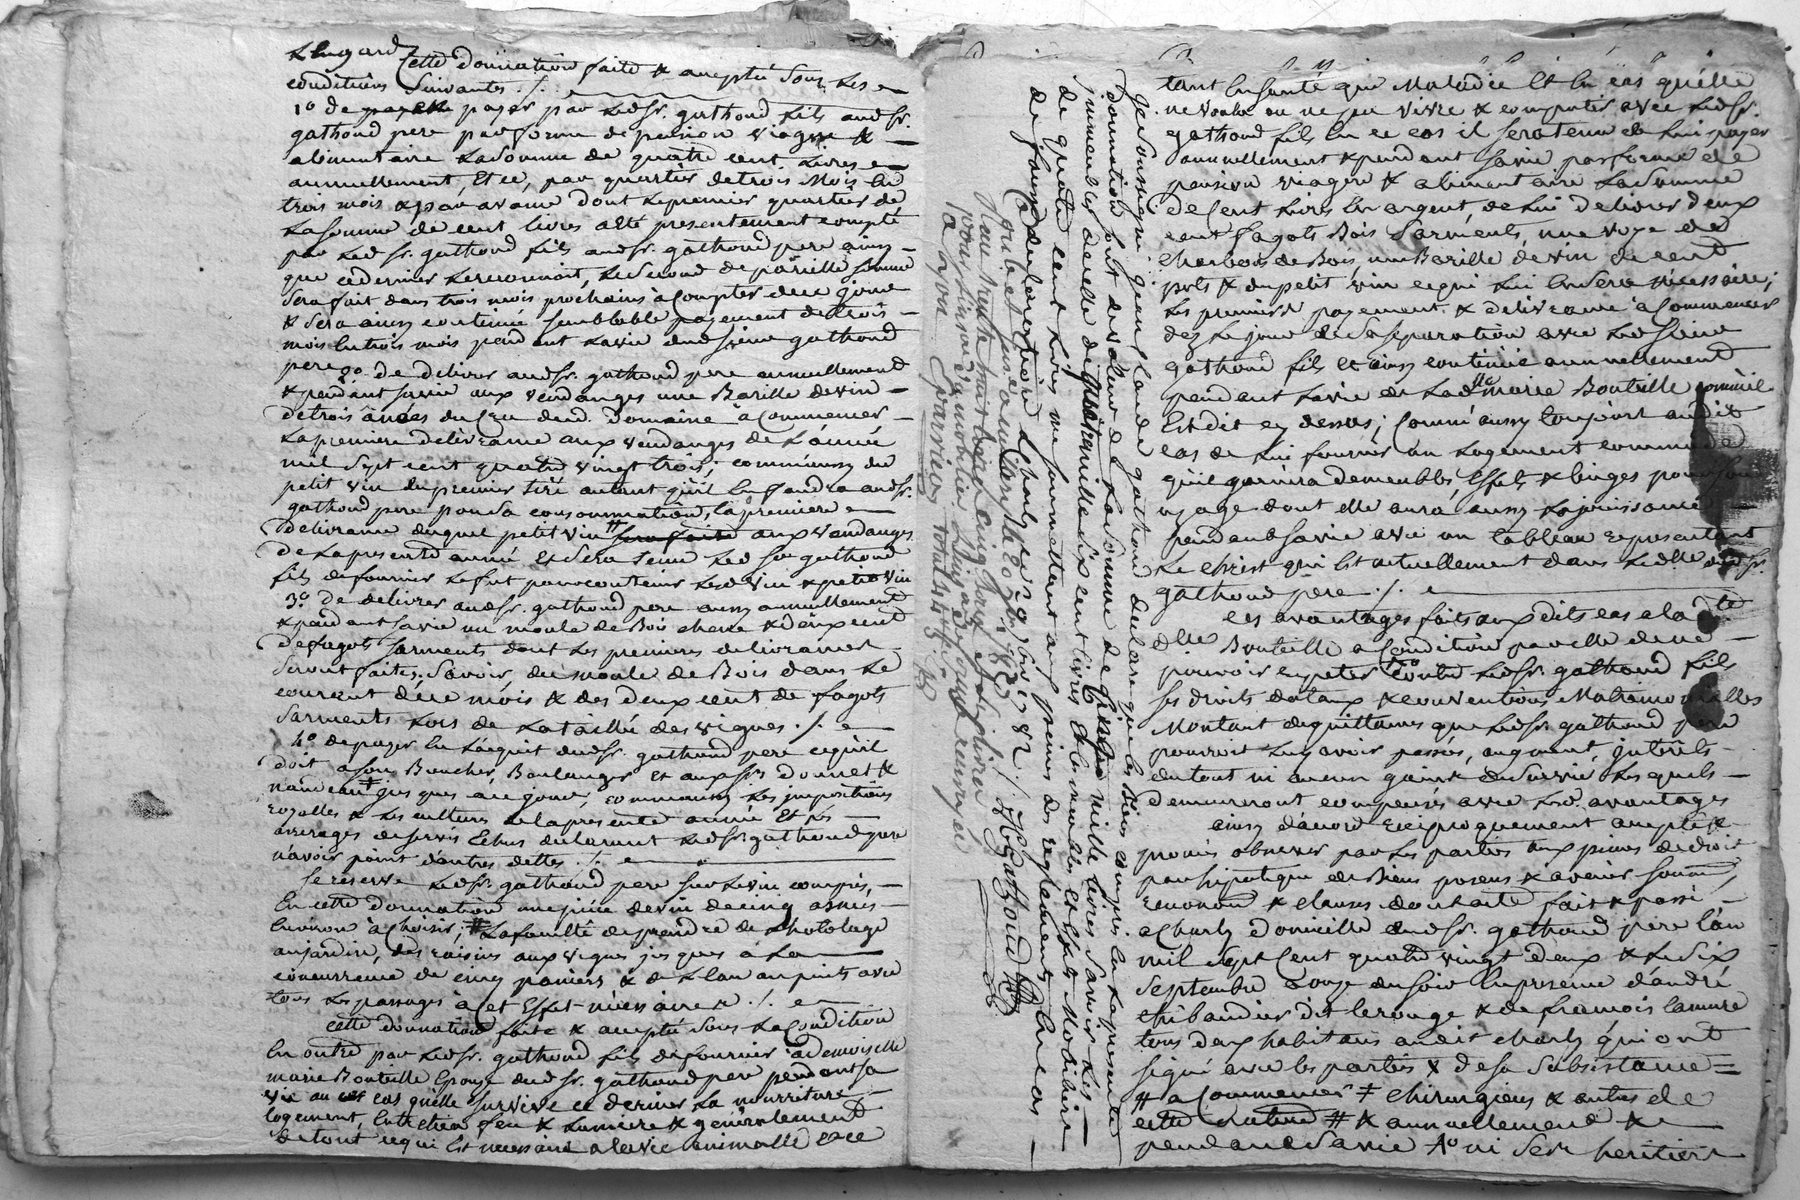 cette donnation faite & acceptée sous les
conditions suivantes ./.
1° de payer par led. Sr. gathoud fils aud. Sr.
gathoud pere par forme de pension viagere &
alimentaire la somme de quatre cent livres
annuellement, et ce, par quartier de trois mois en
trois mois & par avance dont le premier quartier de
la somme de cent livres a été presentement compté
par led. Sr. gathoud fils aud. Sr. gathoud pere ainsy
que ce dernier le reconnoit, le second de pareille somme
sera fait dans trois mois prochains à compter de ce jour
& sera ainsy continué semblable payement de trois
mois en trois mois pendant la vie dud. sieur gathoud
pere 2o. de delivrer aud. Sr. gathoud pere annuellement
& pendant sa vie aux vendanges une Barille de vin
de trois ânées du Cru dud. Domaine à Commencer
la premiere delivrance aux vendanges de l'année
mil sept cent quatre vingt trois; comme aussy du
petit vin du premier tiré autant qu'il en faudra aud. Sr.
gathoud pere pour sa consommation, la premiere
delivrance duquel petit vin # sera faite aux vendanges
de la presente année et sera tenu led. Sr. gathoud
fils de fournir le fut pour contenir led. vin & petit vin
3.° de delivrer aud. Sr. gathoud pere aussy annuellement
& pendant sa vie un moule de Bois chene & deux cent
de fagots sarments dont les premieres delivrances
seront faites, Savoir, du moule de Bois dans le
courant de ce mois & des deux cent de fagots
sarments lors de la taille des vignes ./.
4.° de payer en l'acquit dud. Sr. gathoud pere ce qu'il
doit a son Boucher, Boulanger et aux Srs. Donnet &
jusques a ce jour, comme aussy les impositions
royalles & les cultures de la presente année et les
arrerages de servis Echus declarant led. Sr. gathoud pere
n'avoir point d'autres dettes ./.
Se reserve led. Sr. gathoud pere sur le vin compris,
en cette donnation une piece de vin de cinq asnées
environ à choisir; # la faculté de prendre de l'hotolage
au jardin, des raisins aux vignes jusques à la
concurrence de cinq paniers & de l'eau au puits avec
tous les passages à cet Effet necessaires ./.
cette donnation faite & acceptée sous la Condition
en outre par led. Sr. gathoud fils de fournir a demoiselle
marie Bouteille Epouse dud. Sr. gathoud pere pendant sa
vie au cas qu'elle survive ce dernier la nourriture,
logement, Entretien, feu & lumiere & generalement
de tout ce qui est necessaire a la vie animalle Et ce
Je soussigné jean claude gathoud declare que les Biens compris en la presente
donnation sont de valeur de la somme de mille livres Savoir les
immeubles de celle de quatre mille six cent livres Et les meubles et effets Mobiliers
de quatre cent livres me soumettant aux peines des reglements en cas
de fausse declaration a Charly le 20 1782 ./. JC Gathoud
Controlé et insinué a St. Genis le 1782
Reçu trente huit livres cinq sous
pour l'insinuation du mobilier
à Lyon
tant En santé que Maladie Et en cas qu'elle
ne voulu ou ne peu vivre & compatir avec led. Sr.
gathoud fils En ce cas il sera tenu de lui payer
annuellement & pendant sa vie par forme de
pension viagere & alimentaire la somme
de cent livres En argent, de lui delivrer deux
cent fagots Bois Sarments, une voye de
charbons de Bois, une Barille de vin de cent
pots & du petit vin ce qui lui En sera necessaire;
les premiers payement & delivrance à commencer
dez le jour de sa separation avec led. sieur
gathoud fils Et ainsy continué annuellement
pendant la vie de lad. Dlle marie Bouteille comme il
Est dit cy dessus; Comme aussy toujours audit
cas de lui fournir un logement commode
qu'il garnira de meubles, Effets & linges pour son
usage dont elle aura aussy la jouissance
pendant sa vie avec un tableau representant
le Christ qui Est actuellement dans
gathoud pere ./.
Les avantages faits auxdits cas a la dte
dlle Bouteille a Condition par elle de ne
pouvoir repeter contre led. Sr. gathoud fils
ses droits dotaux & conventions Matrimonialles
Montant de quittances que led. Sr. gathoud pere
pourroit luy avoir passés, augment, interets
du tout ni aucun gains de survie, lesquels
demeureront compensés avec lesd. avantages
ainsy d'acord reciproquement accepté &
promis observer par les parties aux peines de droit
par hipoteque de Biens presens & avenir soumis,
renoncés & clauses dont acte fait & passé
a Charly domicille dud. Sr. gathoud pere l'an
mil Sept Cent quatre vingt deux & le Six
Septembre En presence d'andré
thibaudier dit lerouge & de francois lamure
tous deux habitans audit charly qui ont
signé avec les parties & de sa Subsistance =
# a Commencer ≠ Chirurgiens & autres de
cette nature # & annuellement &
pendant sa vie ni ses heritiers